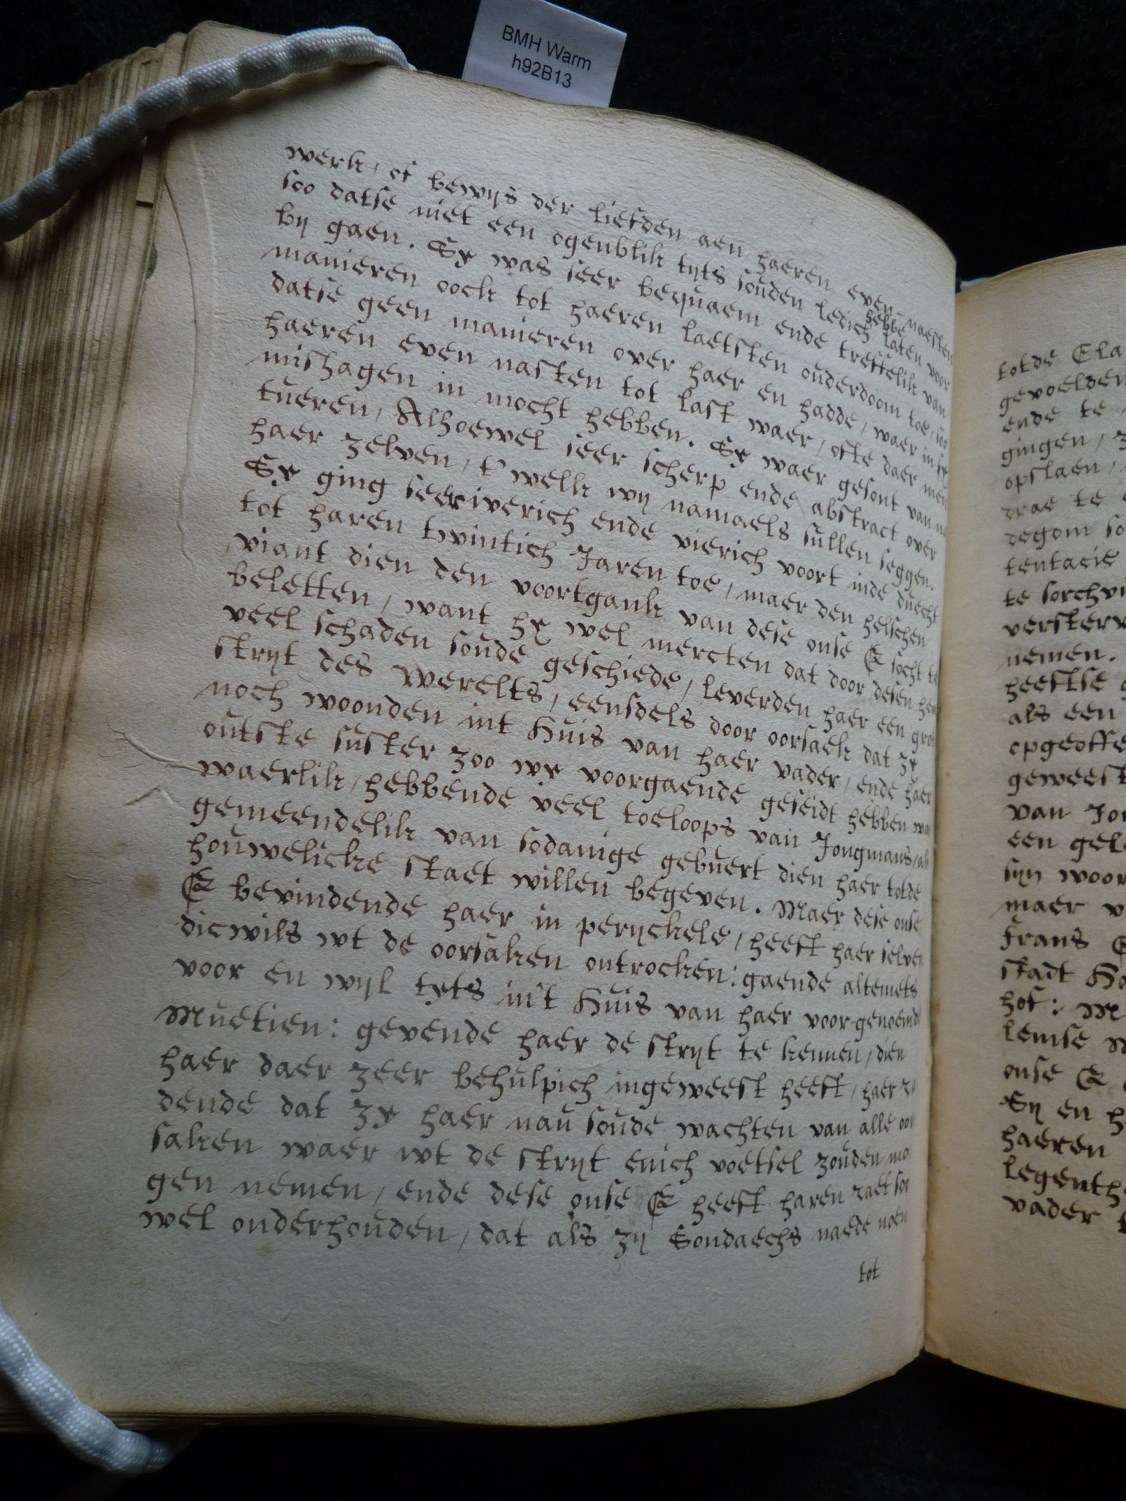 BMH Warm
h92B13
werk, of bewijs der liefden aen haeren even naesten
soo datse niet een ogenblik tyts souden ledich laten voor
hebbe
by gaen. Sy was seer bequaem ende treffelik van
manieren oock tot haeren laetsten ouderdoom toe, soo
datse geen manieren over haer en hadde, waer in sy
haeren even nasten tot last waer, ofte daer men
mishagen in mocht hebben. Sy waer gesont van na
tueren, Alhoewel seer scherp ende abstract over
haer zelven, t'welk wy namaels sullen seggen.
Sy ging seer iverich ende vierich voort inde duecht
tot haren twintich Jaren toe, maer den helschen
viant dien den voortgank van dese onse E socht te
beletten, want hy wel mercten dat door desen hem
veel schaden soude geschiede, leverden haer een groo
stryt des werelts, eensdels door oorsaek dat zy
noch woonden int Huis van haer vader, ende haer
outste suster zoo wy voorgaende geseidt hebben wa
waerlik, hebbende veel toeloops van Jongmans, als
gemeendelik van sodanige gebuert dien haer totde
houwelicke staet willen begeven. Maer dese onse
E bevindende haer in peryckele, heeft haer selven
dicwils wt de oorsaken ontrocken: gaende altemets
voor en wyl tyts in't Huis van haer voorgenoemd
Muetien: gevende haer de stryt te kennen, dien
haer daer zeer behulpich ingeweest heeft, haer ra
dende dat zy haer nau soude wachten van alle oor
saken waer wt de stryt enich voetsel zouden mo
gen nemen, ende dese onse E heeft haren raet soo
wel onderhouden, dat als zy Sondaechs naede noen
tot
totde Ela
gevoelden
ende te
gingen,
opslaen,
drae te
degom so
tentacie
te
nemen.
heeftse
als een
opgeoffe
geweest
van Jon
een gel
syn woor
maer v
frans
stadt Ha
hof: M
onse E
Sy en h
haeren
legenth
vader